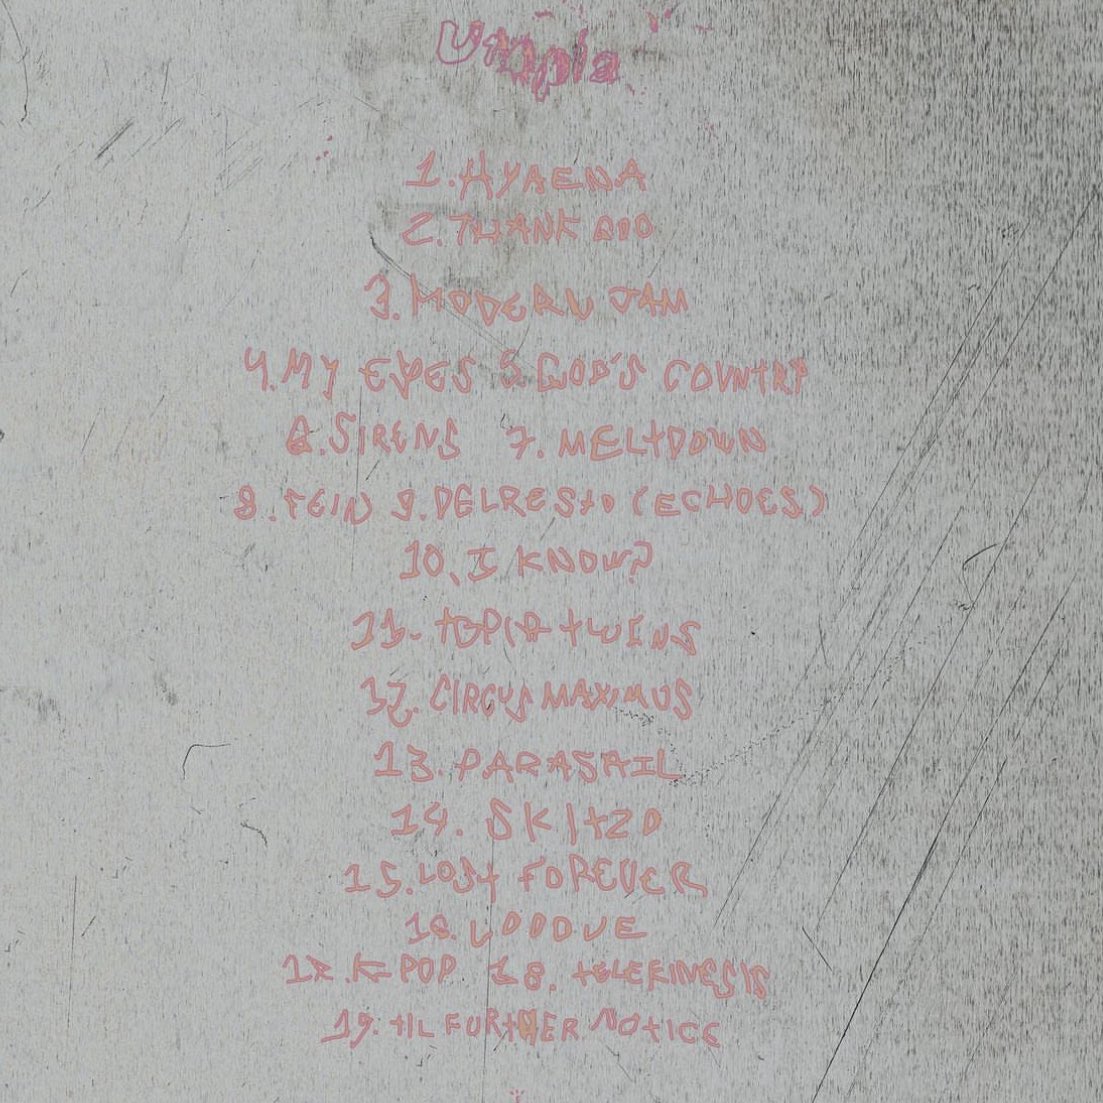 Utopia
1. HYAENA
2. THANK GOD
3. MODERN JAM
4. MY EYES 5. GOD'S COUNTRY
6. SIRENS 7. MELTDOWN
8. FEIN 9. DELRESTO (ECHOES)
10. I KNOW?
11. TOPIA TWINS
12. CIRCUS MAXIMUS
13. PARASAIL
14. SKITZO
15. LOST FOREVER
16. LOOOVE
17. K-POP 18. TELEKINESIS
19. TIL FURTHER NOTICE